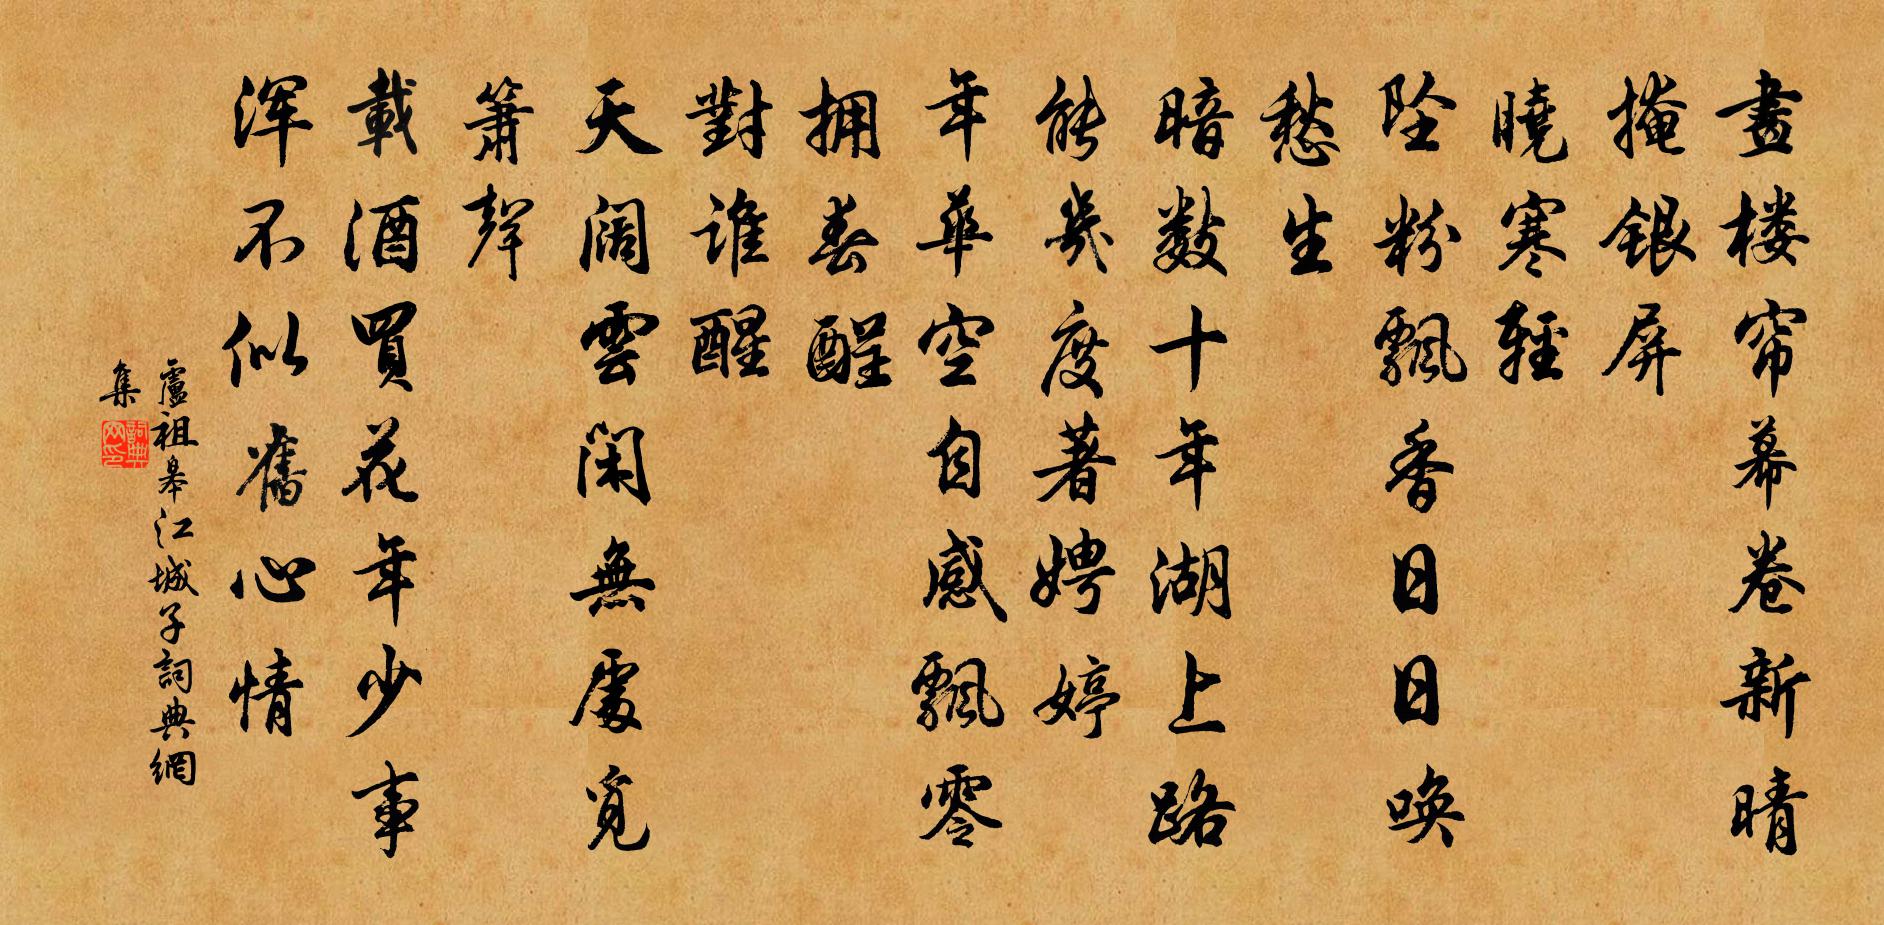 畫楼帘幕卷新晴
掩銀屏
曉寒輕
坠粉飄香日日唤
愁生
暗数十年湖上路
能幾度著娉婷
年華空自感飄零
拥春酲
對誰醒
天阔雲闲無處覓
簫聲
載酒買花年少事
渾不似舊心情
盧祖皋江城子詞典網
集
詞典网印